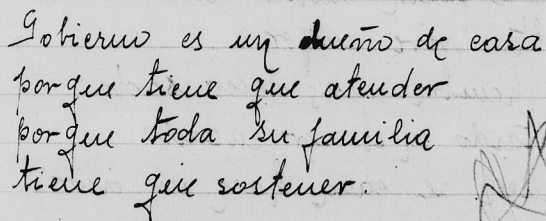 Gobierno es un dueño de casa
porque tiene que atender
porque toda su familia
tiene que sostener.